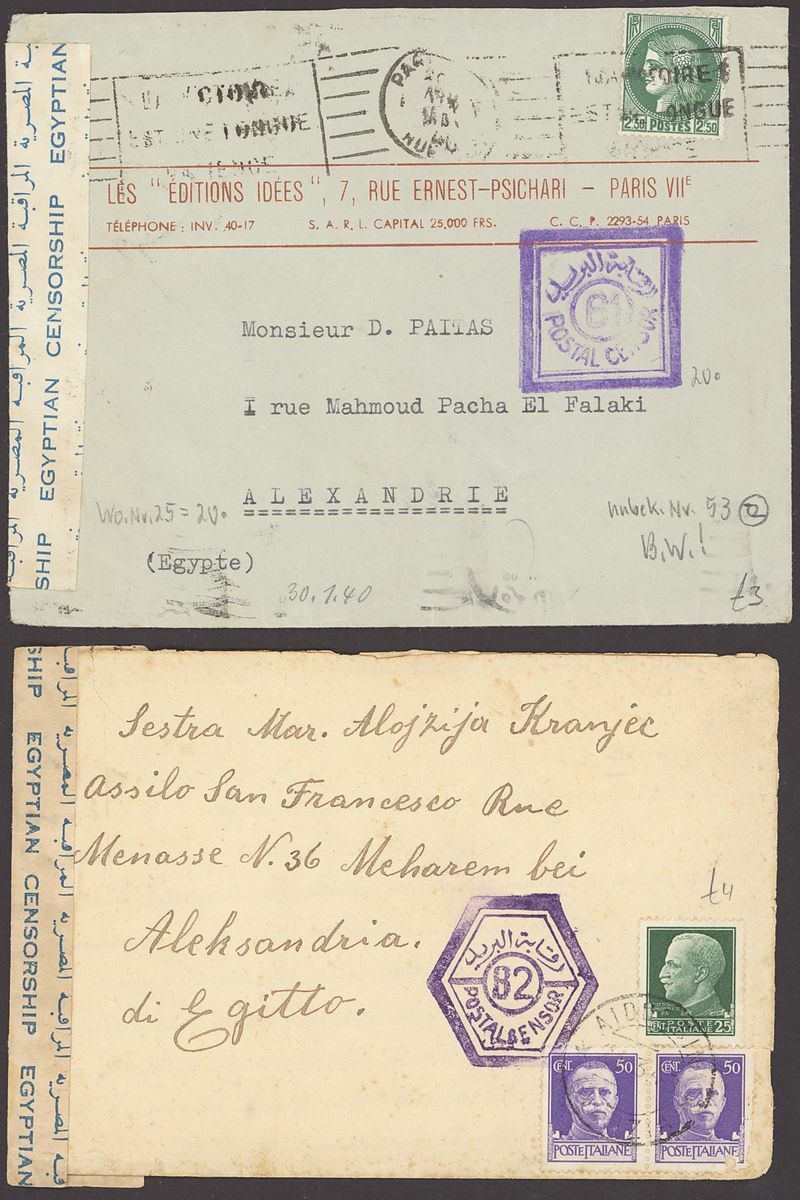 المراقبة المصرية المراقبة المصرية المراقبة المصرية
SHIP EGYPTIAN CENSORSHIP EGYPTIAN
PAR
MAI
RUE
VICTOIRE
EST UNE LONGUE
VICTOIRE
EST UNE LONGUE
2.50 POSTES 2.50
LES "ÉDITIONS IDÉES", 7, RUE ERNEST-PSICHARI - PARIS VIIE
TÉLÉPHONE : INV. 40-17 S. A. R. L. CAPITAL 25,000 FRS. C. C. P. 2293-54 PARIS
رقابة البريد
61
POSTAL CENSOR
Monsieur D. PAITAS
20.
I rue Mahmoud Pacha El Falaki
ALEXANDRIE
Wo.Nr.25 = 20.
Nr. 53
B.W.!
(Egypte)
30.1.40
£3
SHIP EGYPTIAN CENSORSHIP EGYPTIAN
المراقبة المصرية المراقبة المصرية المراقبة
Sestra Mar. Alojzija Kranjec
Assilo San Francesco Rue
Menasse N. 36 Meharem bei
Aleksandria.
di Egitto.
£4
رقابة البريد
82
POSTAL CENSOR
POSTE
CENT. ITALIANE 25
CENT. 50
POSTE ITALIANE
CENT. 50
POSTE ITALIANE